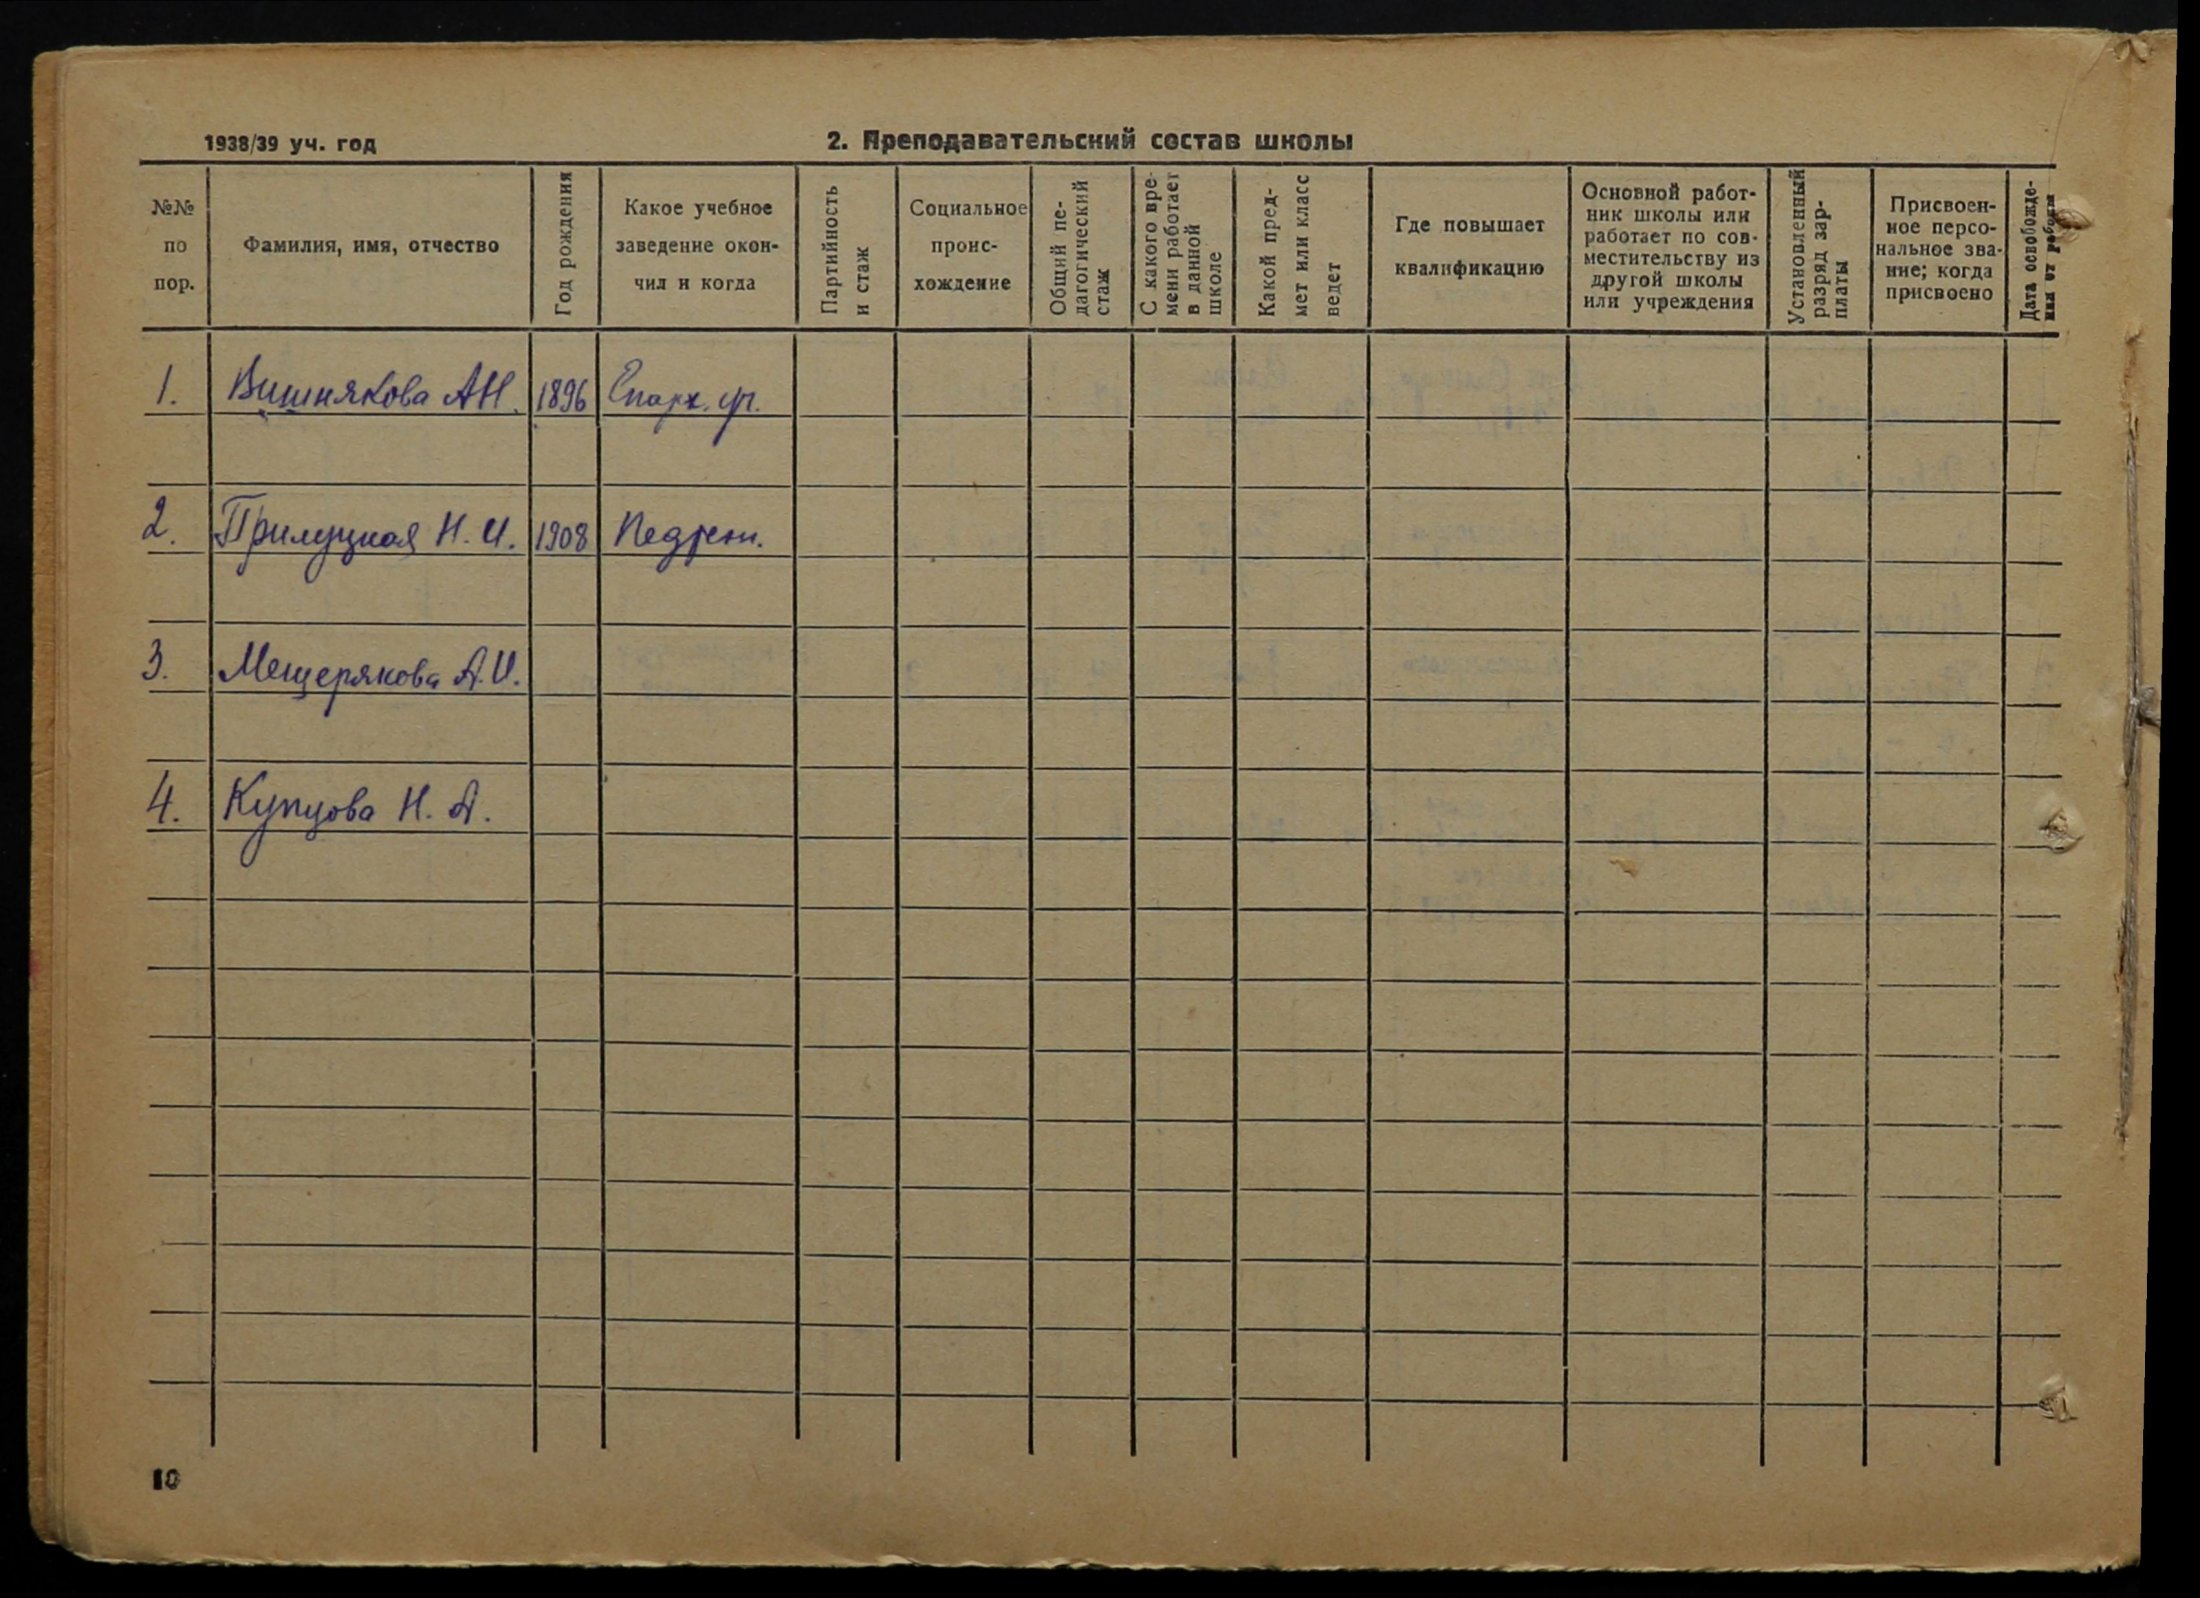 1938/39 уч. год
2. Преподавательский состав школы
№№ по пор.
Фамилия, имя, отчество
Год рождения
Какое учебное заведение окон- чил и когда
Партийность и стаж
Социальное проис- хождение
Общий пе- дагогический стаж
С какого вре- мени работает в данной школе
Какой пред- мет или класс ведет
Где повышает квалификацию
Основной работ- ник школы или работает по сов- местительству из другой школы или учреждения
Установленный разряд зар- платы
Присвоен- ное персо- нальное зва- ние; когда присвоено
Дата освобожде- ния от работы
1. Вишнякова А.Н. 1896 Епарх. уч.
2. Прилуцкая Н. И. 1908
3. Мещерякова А.И.
4. Купцова Н. А.
10